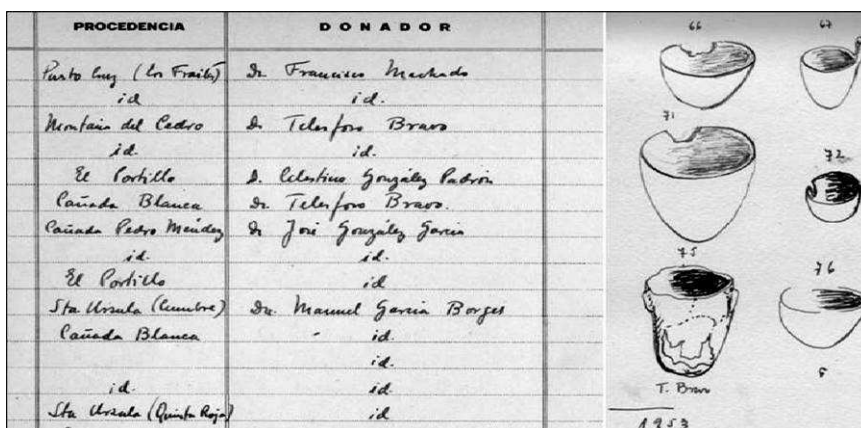 PROCEDENCIA DONADOR
Puerto Cruz (Los Frailes) Dr. Francisco Machado
id id.
Montaña del Cedro Dr. Telesforo Bravo
id. id.
El Portillo D. Celestino González Padrón
Cañada Blanca Dr. Telesforo Bravo.
Cañada Pedro Méndez Dr José González García
id. id.
El Portillo id
Sta Ursula (Cumbre) Dr. Manuel García Borges
Cañada Blanca id.
id.
id. id
Sta Ursula (Quinta Roja) id
66 67
71
72
75
76
T. Bravo
1953